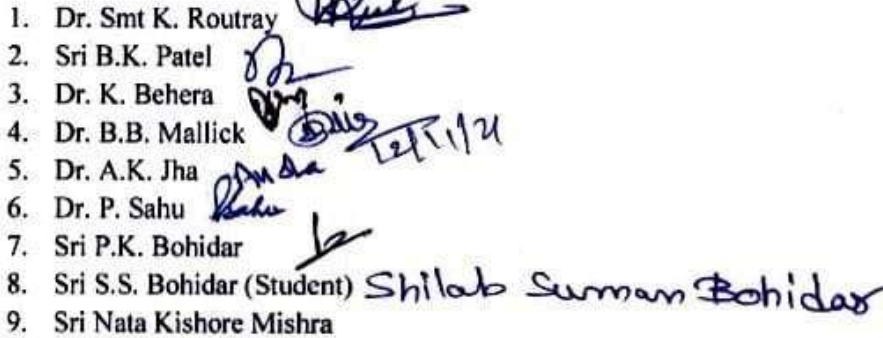 1. Dr. Smt K. Routray
2. Sri B.K. Patel
3. Dr. K. Behera
4. Dr. B.B. Mallick 12/11/21
5. Dr. A.K. Jha
6. Dr. P. Sahu Sahu
7. Sri P.K. Bohidar
8. Sri S.S. Bohidar (Student) Shilab Suman Bohidar
9. Sri Nata Kishore Mishra